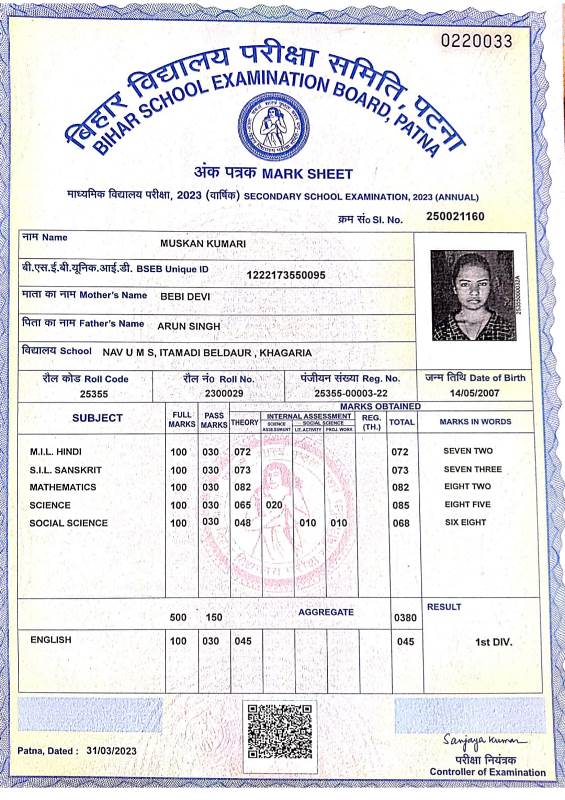 0220033
बिहार विद्यालय परीक्षा समिति, पटना
BIHAR SCHOOL EXAMINATION BOARD, PATNA
अंक पत्रक MARK SHEET
माध्यमिक विद्यालय परीक्षा, 2023 (वार्षिक) SECONDARY SCHOOL EXAMINATION, 2023 (ANNUAL)
क्रम सं० Sl. No. 250021160
नाम Name MUSKAN KUMARI
बी.एस.ई.बी.यूनिक.आई.डी. BSEB Unique ID 1222173550095
माता का नाम Mother's Name BEBI DEVI
पिता का नाम Father's Name ARUN SINGH
विद्यालय School NAV U M S, ITAMADI BELDAUR , KHAGARIA
रौल कोड Roll Code रौल नं० Roll No. पंजीयन संख्या Reg. No. जन्म तिथि Date of Birth
25355 2300029 25355-00003-22 14/05/2007
SUBJECT FULL MARKS PASS MARKS MARKS OBTAINED
THEORY INTERNAL ASSESSMENT REG. (TH.) TOTAL MARKS IN WORDS
SCIENCE SOCIAL SCIENCE
ASSESSMENT LIT. ACTIVITY PROJ. WORK
M.I.L. HINDI 100 030 072 072 SEVEN TWO
S.I.L. SANSKRIT 100 030 073 073 SEVEN THREE
MATHEMATICS 100 030 082 082 EIGHT TWO
SCIENCE 100 030 065 020 085 EIGHT FIVE
SOCIAL SCIENCE 100 030 048 010 010 068 SIX EIGHT
500 150 AGGREGATE 0380 RESULT
ENGLISH 100 030 045 045 1st DIV.
Sanjaya Kumar
Patna, Dated : 31/03/2023
परीक्षा नियंत्रक
Controller of Examination